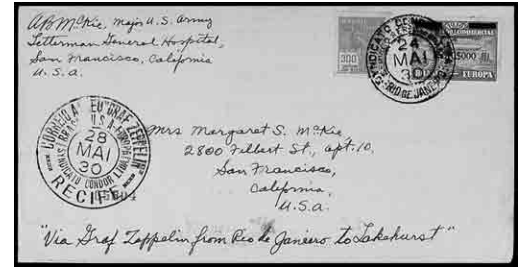 A B McKie. Major U.S. Army
Letterman General Hospital,
San Francisco, California
U.S.a.
300
5000
EUROPA
SYNDICATO
24
MAI
30
RIO DE JANEIRO
CORREIO AEREO GRAF ZEPPELIN
SYNDICATO CONDOR LIMITADA
28
MAI
30
RECIFE
Mrs Margaret S. McKie
2800 Filbert St., apt. 10.
San Francisco,
California,
U.S.a.
"Via Graf Zeppelin from Rio de Janiero to Lakehurst"